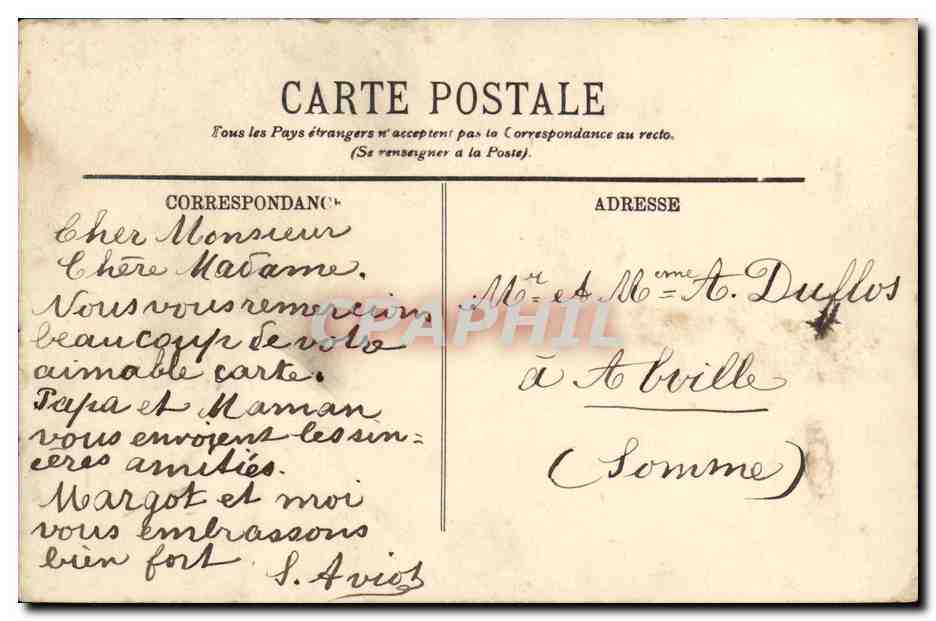 CARTE POSTALE
Tous les Pays étrangers n'acceptent pas la Correspondance au recto.
(Se renseigner à la Poste).
CORRESPONDANCE
Cher Monsieur
Chère Madame.
Nous vous remercions
beaucoup de votre
aimable carte.
Papa et Maman
vous envoient les sin=
cères amitiés.
Margot et moi
vous embrassons
bien fort
S. Aviot
ADRESSE
Mr et Mme A. Duflos
à Abville
(Somme)
CPAPHIL